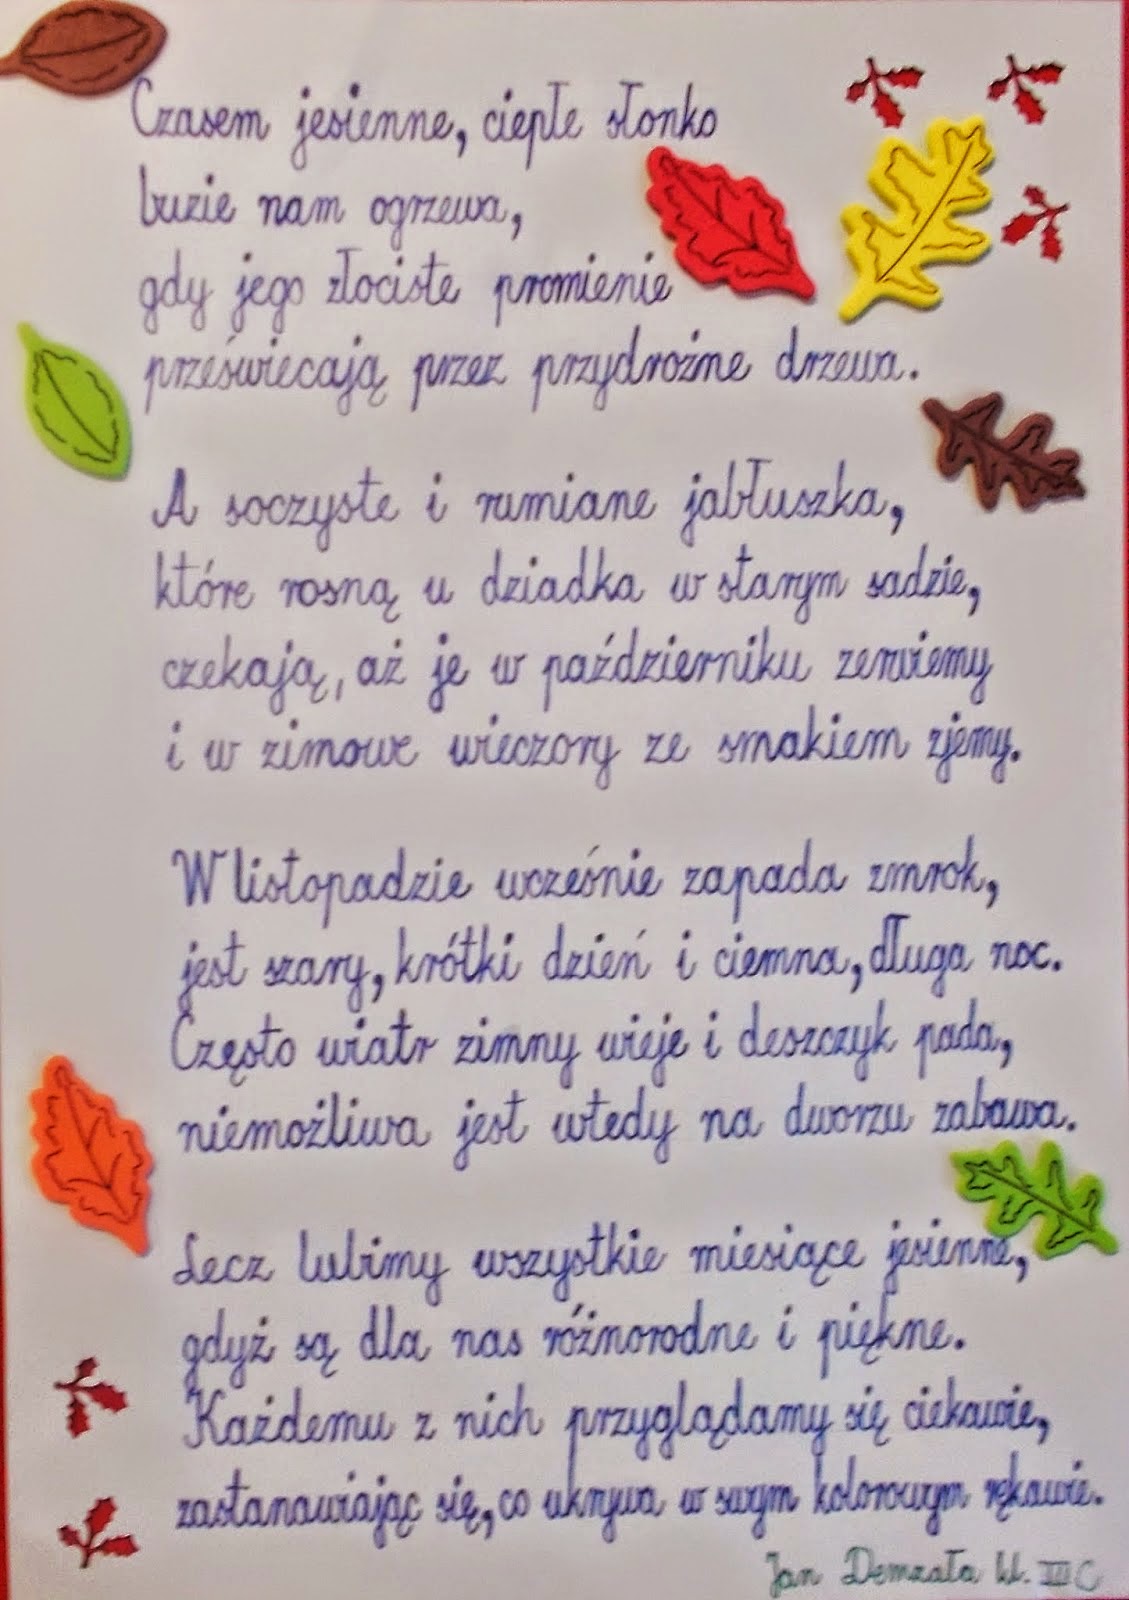 Czasem jesienne, ciepłe słonko
buzie nam ogrzewa,
gdy jego złociste promienie
przeświecają przez przydrożne drzewa.
A soczyste i rumiane jabłuszka,
które rosną u dziadka w starym sadzie,
czekają, aż je w październiku zerwiemy
i w zimowe wieczory ze smakiem zjemy.
W listopadzie wcześnie zapada zmrok,
jest szary, krótki dzień i ciemna, długa noc.
Często wiatr zimny wieje i deszczyk pada,
niemożliwa jest wtedy na dworzu zabawa.
Lecz lubimy wszystkie miesiące jesienne,
gdyż są dla nas różnorodne i piękne.
Każdemu z nich przyglądamy się ciekawie,
zastanawiając się, co ukrywa w swym kolorowym rękawie.
Jan Demzała kl. III C